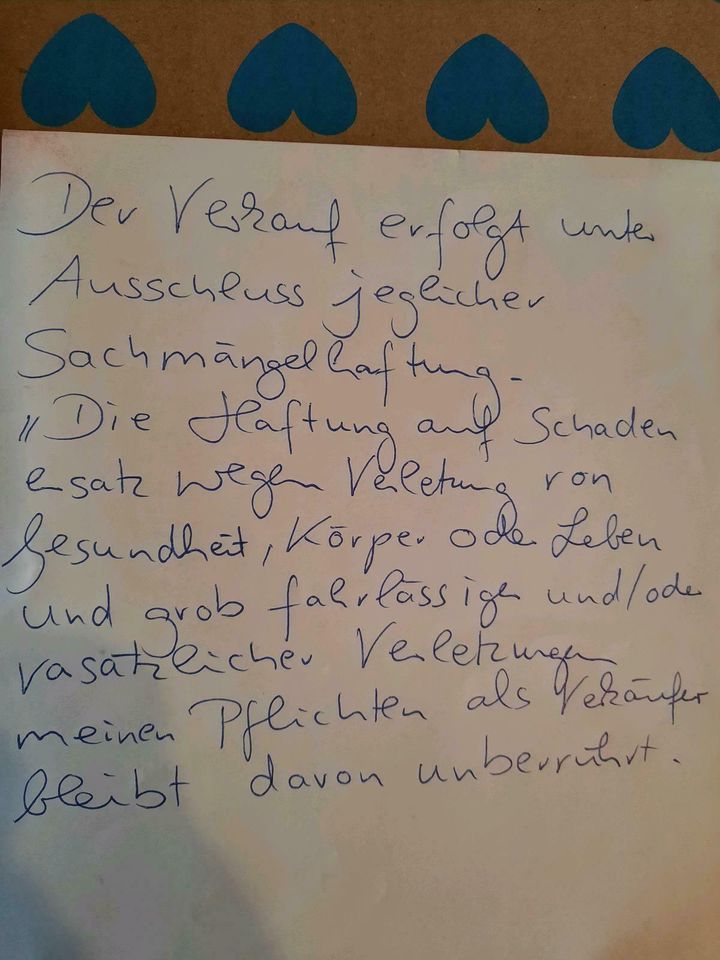 Der Verkauf erfolgt unter
Ausschluss jeglicher
Sachmängelhaftung.
„Die Haftung auf Schaden
ersatz wegen Verletung von
Gesundheit, Körper oder Leben
und grob fahrlässiger und/oder
vasätzlicher Verletzungen
meinen Pflichten als Verkäufer
bleibt davon unberrührt.